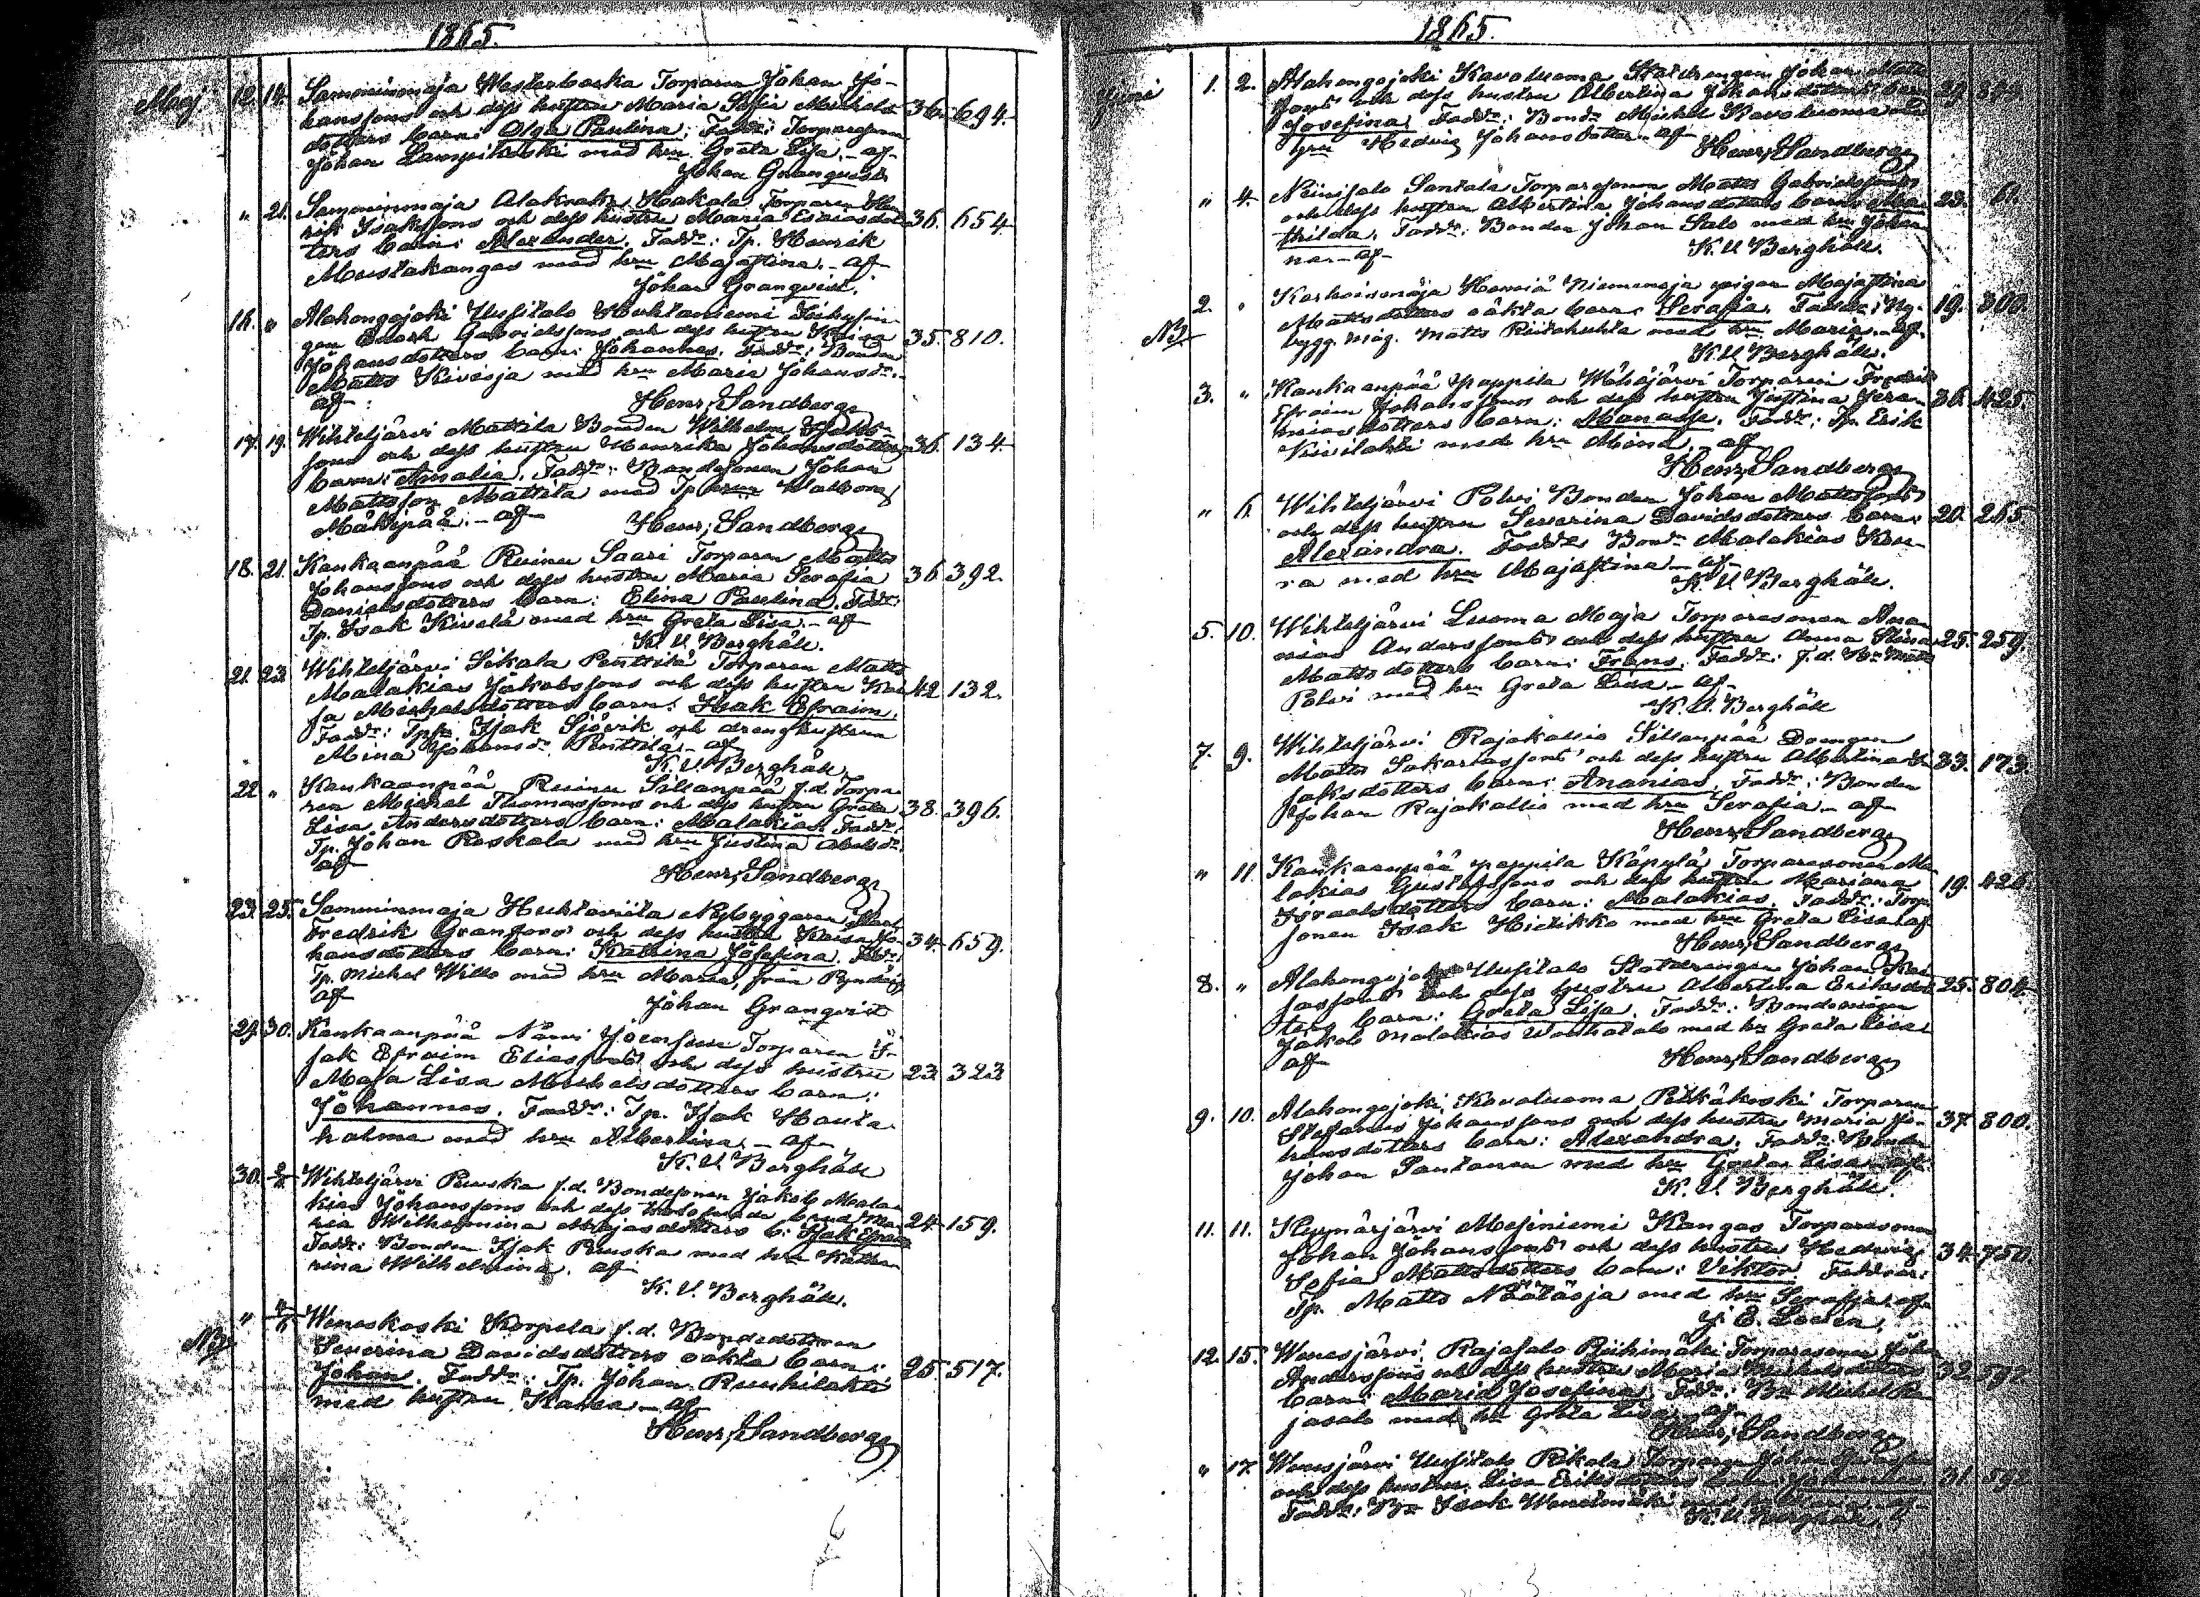 1865.
Maj 12. 14. Samminmaja Westerbacka Torparen Johan Jo-
hanssons och dess hustru Maria Sofia Michels 36. 694.
dotters barn: Olga Paulina. Fadd: Torparesonen
Johan Lampikoski med hru Greta Lisa. - af
Johan Granqvist
" 21. Samminmaja Alakraka Hakala Torparen Hen
rik Isakssons och dess hustru Maria Esaiasdot 36. 654.
ters barn: Alexander. Fadd: Tp. Henrik
Mustakangas med hru Majastina. - af
Johan Granqvist.
16. " Alahongojoki Uusitalo Huhtaniemi
Enoch Gabrielssons och dess hustru Kaisa 35. 810.
Johansdotters barn: Johannes. Fadd: Bonden
Matts Kivioja med hru Maria Johansdr.
af
Henr. Sandberg
17. 19. Wihteljärvi Mattila Bonden Wilhelm
sons och dess hustru Henrika Johansdotters 36. 134.
barn: Amalia. Fadd: Bondesonen Johan
Mattsson Mattila med Tp hrun Walborg
Mäkipää. - af
Henr. Sandberg
18. 21. Kankaanpää Ruinu Saari Torparen Matts
Johanssons och dess hustru Maria Serafia 36. 392.
Danielsdotters barn: Elina Paulina. Fadd:
Tp. Isak Kivelä med hru Greta Lisa. - af
K. U. Berghäll.
21. 23. Wihteljärvi Sikala Penttilä Torparen Matts
Malakias Jakobssons och dess hustru Kai 42. 132.
sa Michelsdotters barn: Isak Efraim.
Fadd: Isak Sjövik och drenghustrun
Mina Johansdr Penttilä. - af
K. U. Berghäll
22. " Kankaanpää Ruinu Sillanpää f.d. Torpa
ren Michel Thomassons och dess hustru Greta 38. 396.
Lisa Andersdotters barn: Malakias. Fadd:
Tp. Johan Koskela med hru Justina
af
Henr. Sandberg
23. 25. Samminmaja Huhtaviita Nybyggaren
Fredrik Granfors och dess hustru Kaisa Jo- 34. 659.
hansdotters barn: Katrina Josefina. Fadd:
Tp. Michel Wills med hru Maria, från
af
Johan Granqvist
29. 30. Kankaanpää Närvi Torparen I-
sak Efraim Eliassons och dess hustru 23. 323
Maja Lisa Michelsdotters barn:
Johannes. Fadd: Tp. Isak Hauta
halme med hru Albertina. - af
K. U. Berghäll
30. 2/6 Wihteljärvi Puuska f.d. Bondesonen Jakob Mala
kias Johanssons och dess brud Ma 24. 159.
ria Wilhelmina dotters b. Isak Efraim
Fadd: Bonden Isak Puuska med hru Katha
rina Wilhelmina. af
K. U. Berghäll.
" 4/6 Weneskoski Korpela f.d. Bondedottren
NB Severina Davidsdotters oäkta barn:
Johan. Fadd: Tp. Johan Ruuhilahti 25. 517.
med hustru Kaisa - af
Henr. Sandberg
1865.
Juni 1. 2. Alahongojoki Kavaluoma Statdrengen Johan
och dess hustru Albertina Johansdotters 29.
Josefina. Fadd: Bond. Michel Kavaluoma med
hru Hedvig Johansdotter. af
Henr. Sandberg
" 4. Niinisalo Santala Torparesonen Matts Gabrielssons
och dess hustru Albertina Johansdotters barn: 23. 61.
Hilda. Fadd: Bonden Johan Salo med hru Johan
na. - af
K. U. Berghäll.
2. " Karhoismaja Niemenmaja pigan Majastina
NB Mattsdotters oäkta barn: Serafia. Fadd: Ny- 19. 300.
bygg. måg. Matts med hru Maria. - af.
K. U. Berghäll.
3. " Kankaanpää Pappila Wähäjärvi Torparen Fredrik
Efraim Johanssons och dess hustru Justina Jeram 36. 425.
miasdotters barn: Manasse. Fadd: Tp. Erik
Kivilahti med hru Mina. - af
Henr. Sandberg
" 6. Wihteljärvi Polvi Bonden Johan Mattssons
och dess hustru Severina Davidsdotters barn: 20. 265
Alexandra. Fadd: Bond. Malakias Keu-
ra med hru Majastina - af
K. U. Berghäll.
5. 10. Wihteljärvi Luoma Maja Torparesonen Ana
nias Anderssons och dess hustru Anna Stina 25. 259.
Mattsdotters barn: Frans. Fadd: f.d. Bn Matts
Polvi med hru Greta Lisa - af
K. U. Berghäll
7. 9. Wihteljärvi Rajakallio Sillanpää Drengen
Matts Sakariassons och dess hustru Albertina I 33. 173.
saksdotters barn: Ananias. Fadd: Bonden
Johan Rajakallio med hru Serafia. - af
Henr. Sandberg
" 11. Kankaanpää Pappila Käpylä Torparesonen Ma
lakias Gustafssons och dess hustru Mariana 19. 426.
Israelsdotters barn: Malakias. Fadd: Torp.
sonen Isak Hietikko med hru Greta Lisa. af
Henr. Sandberg
8. " Alahongojoki Uusitalo Statdrengen Johan
och dess hustru Albertina Eriksdot 25. 804.
ters barn: Greta Lisa. Fadd: Bondemågen
Jakob Malakias Wanhatalo med hr Greta Lisa
af
Henr. Sandberg
9. 10. Alahongojoki Kavaluoma Pitkäkoski Torparen
Stefanus Johanssons och dess hustru Maria Jo- 37. 800.
hansdotters barn: Alexandra. Fadd: Bonden
Johan Santanen med hru Greta Lisa - af
K. U. Berghäll.
11. 11. Hyynärjärvi Mesiniemi Kangas Torparesonen
Johan Johanssons och dess hustru Hedvig 34. 750.
Sofia Mattsdotters barn: Viktor. Faddrar:
Tp. Matts Näätäoja med hru Serafia. af
12. 15. Wenesjärvi Rajasalo Riihimäki Torparesonen Johan
Anderssons och dess hustru Maria Michelsdotters 32.
barn: Maria Josefina. Fadd: Bn Michel Ra
jasalo med hr Greta Lisa - af
Henr. Sandberg
" 17. Wenesjärvi Uusitalo Pikala Torparen Johan
och dess hustru Lisa Eriksdotters 31.
Fadd: Bn Isak Wenetmäki
K. U. Berghäll.